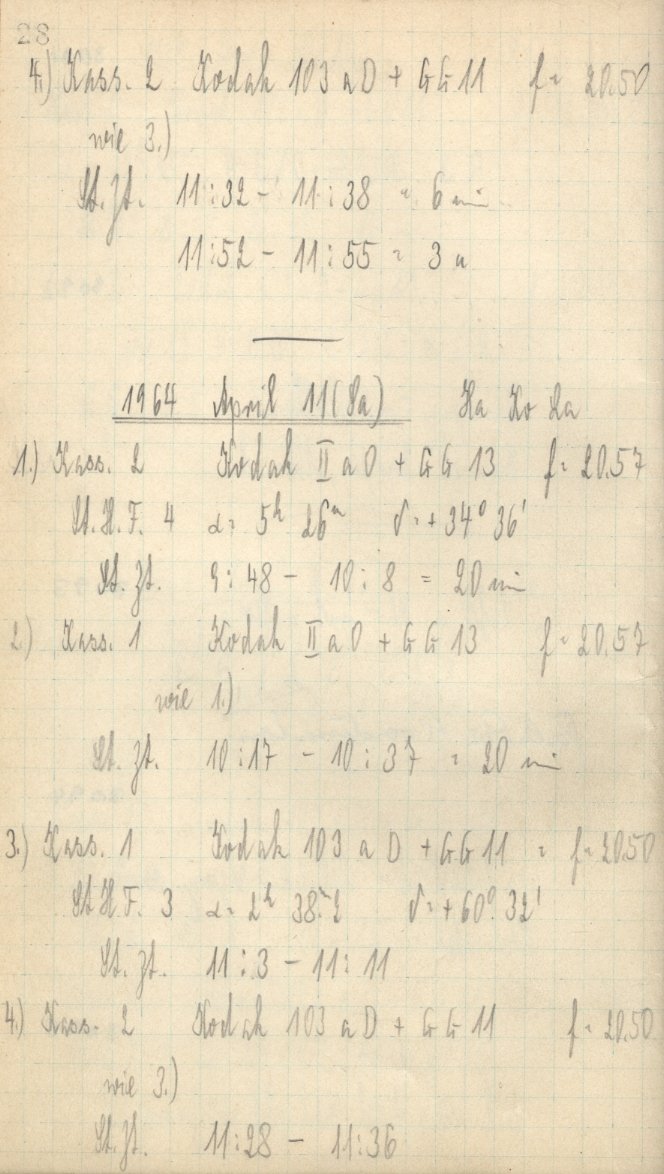 28
4.) Kass. 2 Kodak 103 a D + GG 11 f = 20.50
wie 3.)
St. Zt. 11:32 - 11:38 = 6 min
11:52 - 11:55 = 3 "
1964 April 11 (Sa) Ha Ko
1.) Kass. 2 Kodak II a O + GG 13 f = 20.57
St. H. F. 4 α = 5ʰ 26ᵐ δ = + 34° 36'
St. Zt. 9:48 - 10:8 = 20 min
2.) Kass. 1 Kodak II a O + GG 13 f = 20.57
wie 1.)
St. Zt. 10:17 - 10:37 = 20 min
3.) Kass. 1 Kodak 103 a D + GG 11 = f = 20.50
St. H. F. 3 α = 2ʰ 38ᵐ.2 δ = + 60° 32'
St. Zt. 11:3 - 11:11
4.) Kass. 2 Kodak 103 a D + GG 11 f = 20.50
wie 3.)
St. Zt. 11:28 - 11:36